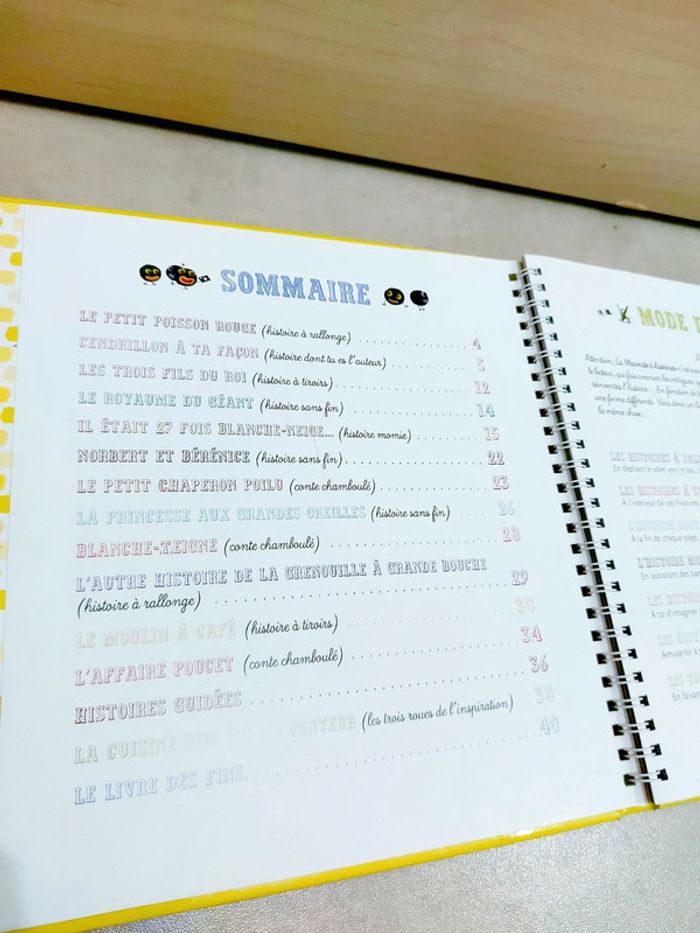 SOMMAIRE
LE PETIT POISSON ROUGE (histoire à rallonge) 4
CENDRILLON À TA FAÇON (histoire dont tu es l'auteur) 5
LES TROIS FILS DU ROI (histoire à tiroirs) 12
LE ROYAUME DU GÉANT (histoire sans fin) 14
IL ÉTAIT 27 FOIS BLANCHE-NEIGE... (histoire momie) 15
NORBERT ET BÉRÉNICE (histoire sans fin) 22
LE PETIT CHAPERON POILU (conte chamboulé) 23
LA PRINCESSE AUX GRANDES OREILLES (histoire sans fin) 26
BLANCHE-TEIGNE (conte chamboulé) 28
L'AUTRE HISTOIRE DE LA GRENOUILLE À GRANDE BOUCHE
(histoire à rallonge) 29
LE MOULIN À CAFÉ (histoire à tiroirs) 30
L'AFFAIRE POUCET (conte chamboulé) 34
HISTOIRES GUIDÉES 36
LA CUISINE CONTEUR (les trois roues de l'inspiration) 38
LE LIVRE DES FINS 40
MODE
Attention, La Marmite à histoires
le lecteur, qui fais avancer les
réinventes l'histoire... En fonction de
une forme différente. Vous donc un
la même chose...
LES HISTOIRES À
En dépliant le volet vers le bas,
LES HISTOIRES À
À l'intérieur de ces
L'HISTOIRE
À la fin de chaque page,
L'HISTOIRE
En associant des
LES
À toi d'imaginer
LES
Amuse-toi à
LES
En